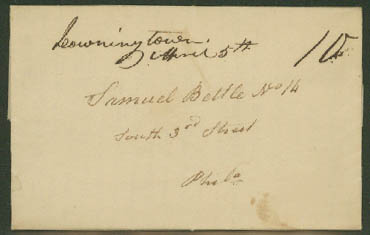 Downingtown
April 5th
10
Samuel Bettle No 14
South 3rd Street
Phila